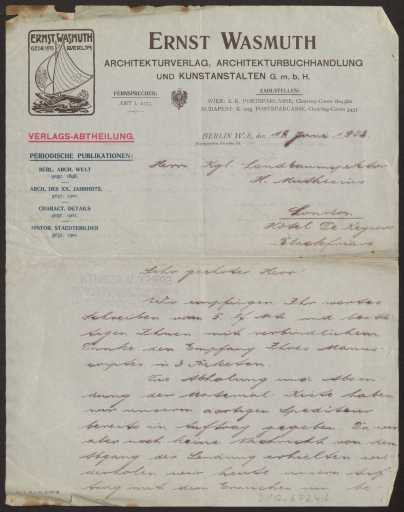 ERNST WASMUTH
BERLIN
ERNST WASMUTH
ARCHITEKTURVERLAG, ARCHITEKTURBUCHHANDLUNG
UND KUNSTANSTALTEN G. m. b. H.
FERNSPRECHER:
AMT I.
ZAHLSTELLEN:
WIEN: K. K. POSTSPARCASSE, Clearing-Conto
BUDAPEST: K. ung. POSTSPARCASSE, Clearing-Conto
VERLAGS-ABTHEILUNG.
BERLIN W. 8, den
PERIODISCHE PUBLIKATIONEN:
BERL. ARCH. WELT
gegr. 1898.
ARCH. DES XX. JAHRHDTS.
gegr.
CHARACT. DETAILS
gegr.
HISTOR. STAEDTEBILDER
gegr.
Herrn Kgl. Landbauinspektor
H. Muthesius
London
Hotel De Keyser
Blackfriars
Sehr geehrter Herr
Wir empfingen Ihr wertes
Schreiben vom 5. und bestä-
tigen Ihnen mit verbindlichem
Danke den Empfang Ihres Manus-
criptes in 3 Paketen.
Die Abholung und Absen-
dung der Material Kiste haben
wir unserem dortigen Spediteur
bereits in Auftrag gegeben. Da wir
aber noch keine Nachricht von dem
Abgang der Sendung erhielten wie-
derholen wir heute unsern Auf-
trag mit dem Ersuchen um be